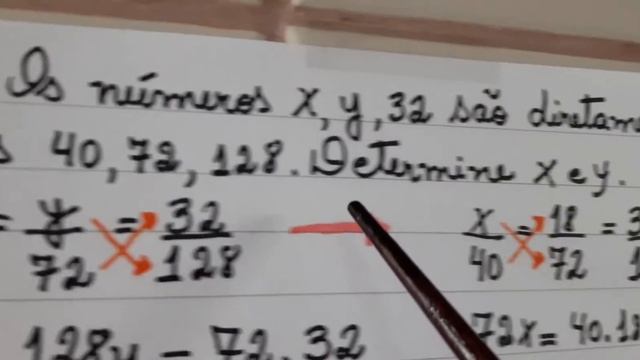 Os números x, y, 32 são diretam
s 40, 72, 128. Determine x e y.
= y/72 = 32/128
x/40 = 18/72 = 3
128y = 72.32
72x = 40.18